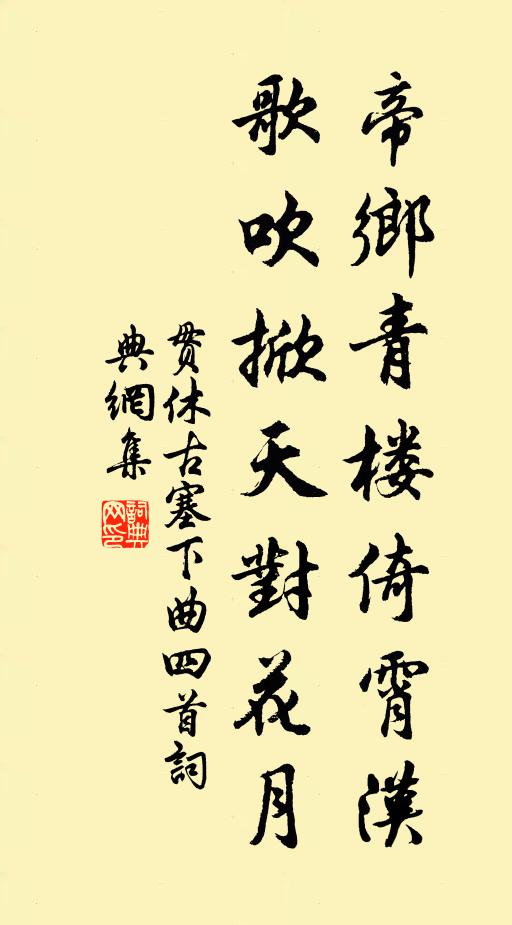 帝鄉青樓倚霄漢
歌吹掀天對花月
貫休古塞下曲四首詞
典網集
詞典
网印